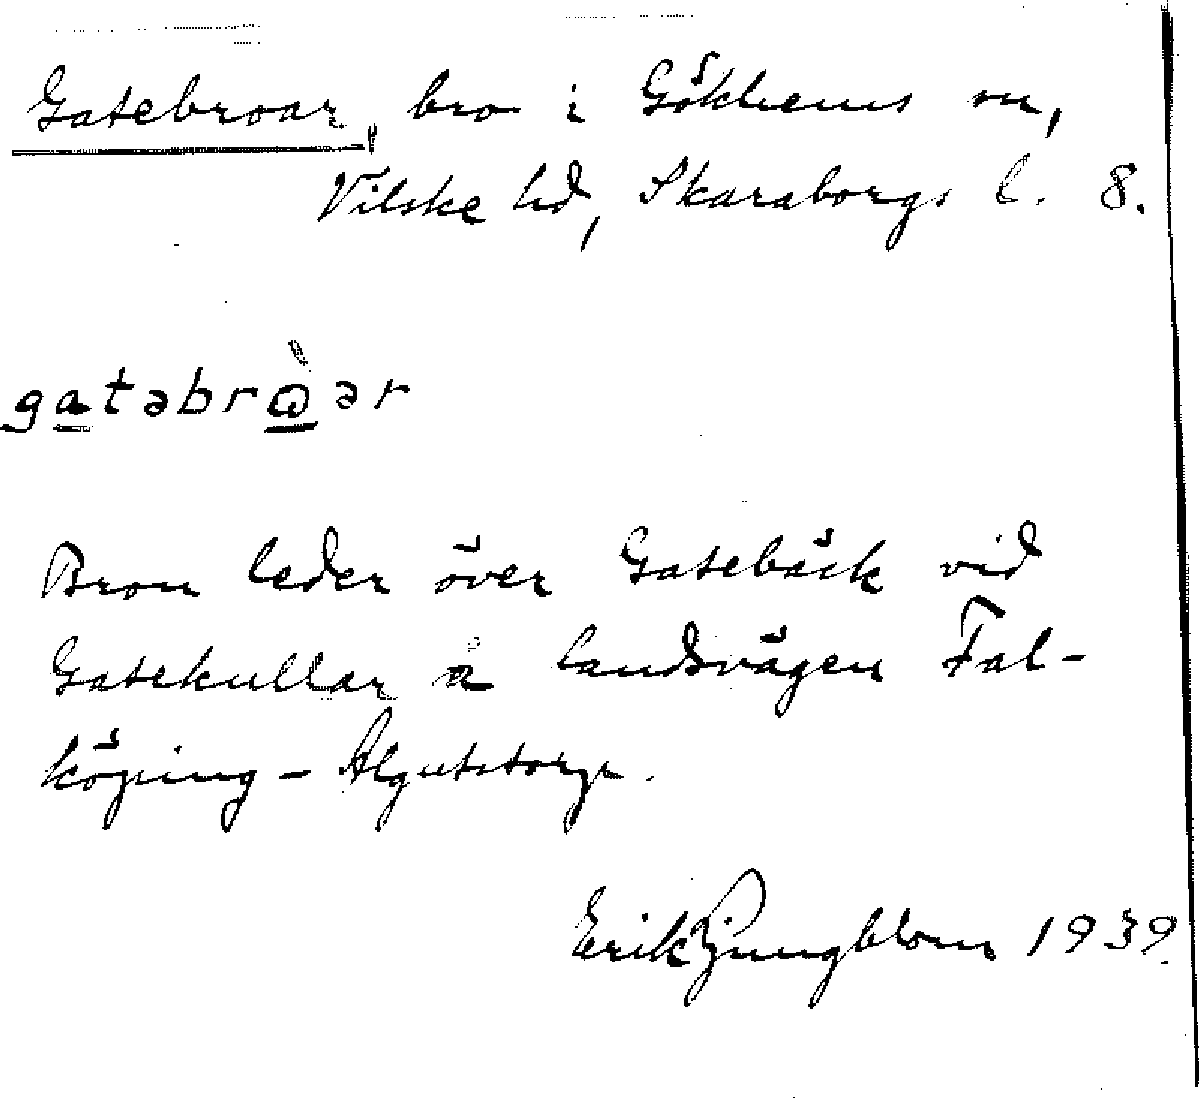 Gatebroar, bro i Gökhems sn,
Vilske hd, Skaraborgs l. 8.
gatəbrὼər
Bron leder över Gatebäck vid
Gatekullar å landsvägen Fal-
köping - Algutstorp.
Erik Ljungblom 1939.